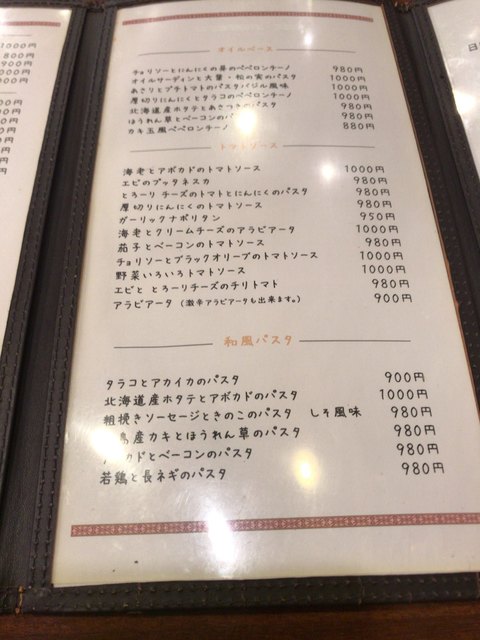 1000円
800円
900円
000円
000円
オイルベース
チョリソーとにんにくの芽のペペロンチーノ 980円
オイルサーディンと大葉・松の実のパスタ 1000円
あさりとプチトマトのパスタバジル風味 980円
厚切りにんにくとタラコのペペロンチーノ 1000円
北海道産ホタテとあさつきのパスタ 980円
ほうれん草とベーコンのパ 980円
カキ玉風ペペロンチーノ 880円
トマトソース
海老とアボカドのトマトソース 1000円
エビのプッタネスカ 980円
とろーり チーズのトマトとにんにくのパスタ 980円
厚切りにんにくのトマトソース 980円
ガーリックナポリタン 950円
海老とクリームチーズのアラビアータ 1000円
茄子とベーコンのトマトソース 980円
チョリソーとブラックオリーブのトマトソース 1000円
野菜いろいろトマトソース 1000円
エビと とろーりチーズのチリトマト 980円
アラビアータ (激辛アラビアータも出来ます。) 900円
和風パスタ
タラコとアカイカのパスタ 900円
北海道産ホタテとアボカドのパスタ 1000円
粗挽きソーセージときのこのパスタ しそ風味 980円
島産カキとほうれん草のパスタ 980円
カドとベーコンのパスタ 980円
若鶏と長ネギのパスタ 980円